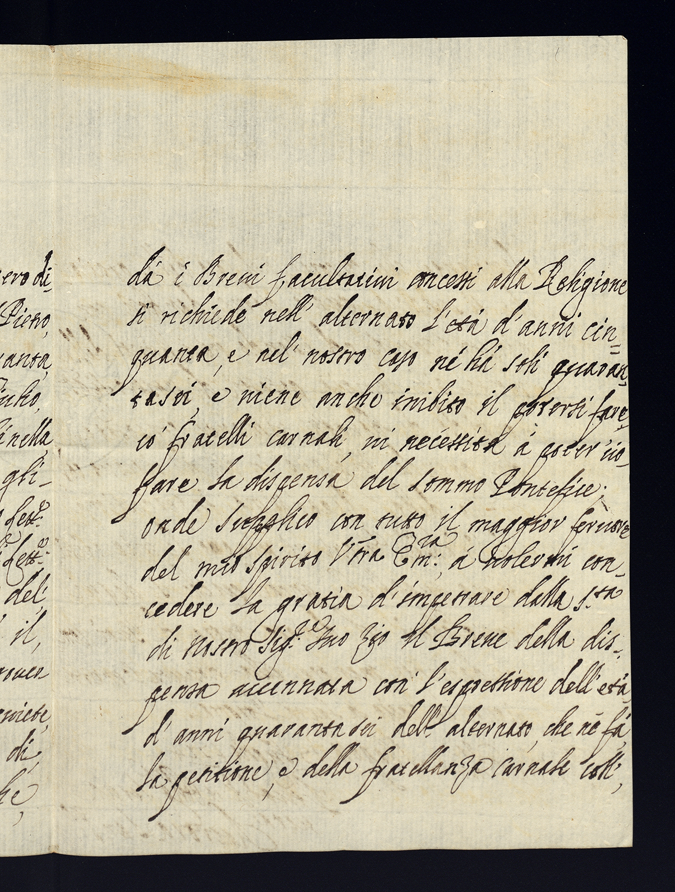 ero di-
Pietro,
anta,
inella
gli-
del
il,
di,
he
dà i Brevi facultativi concessi alla Religione
si richiede nell' alternato l'età d'anni cin-
quanta, e nel nostro caso né hà soli quaran-
tasei, e viene anche inibito il potersi fare
co' fratelli carnali, vi necessita à poter ciò
fare la dispensa del sommo Pontefice;
onde supplico con tutto il maggior fervore
del mio spirito V̄tra Em:za, à volermi con-
cedere la gratia d'impetrare dalla S.ta
di Nostro Sig.re Suo Zio il Breve della dis-
pensa accennata con l'espressione dell'età
d'anni quarantasei dell' alternato, che né fà
la petitione, e della fratellanza carnale coll',